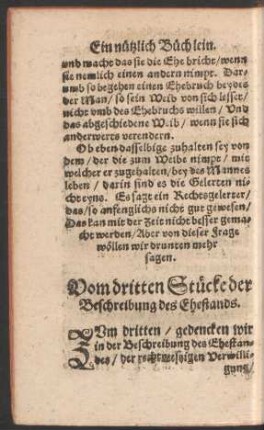 Ein nützlich Büchlein.
und macht das sie die Ehe bricht/wenn
sie nemlich einen andern nimpt. Dar-
umb so begehen einen Ehebruch beydes
der Man/ so sein Weib von sich lesset/
nicht vmb des Ehebruchs willen/ Vnd
das abgeschiedene Weib/ wenn sie sich
anderwerts verendern.
Ob eben dasselbige zuhalten sey von
dem/ der die zum Weibe nimpt/ mit
welcher er zugehalten/ bey des Mannes
leben/ darin sind es die Gelerten nis
cht eyns. Es sagt ein Rechtsgelerter/
das/so anfenglichs nicht gut gewesen/
Das kan mit der Zeit nicht besser gema-
cht werden/ Aber von dieser Frage
wöllen wir drunten mehr
sagen.
Vom dritten Stücke der
Beschreibung des Ehestands.
ZVm dritten/ gedencken wir
in der Beschreibung des Ehestan-
des/ der rechtmessigen Verwilli-
gung/